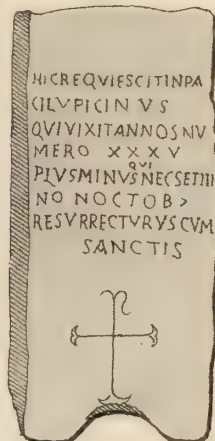 HICREQVIESCITINPA
CILVPICINVS
QVIVIXITANNOSNV
MERO XXXV
QVI
PLVSMINVSNECSETIIII
NO NOCTOB>
RESVRRECTVRVSCVM
SANCTIS